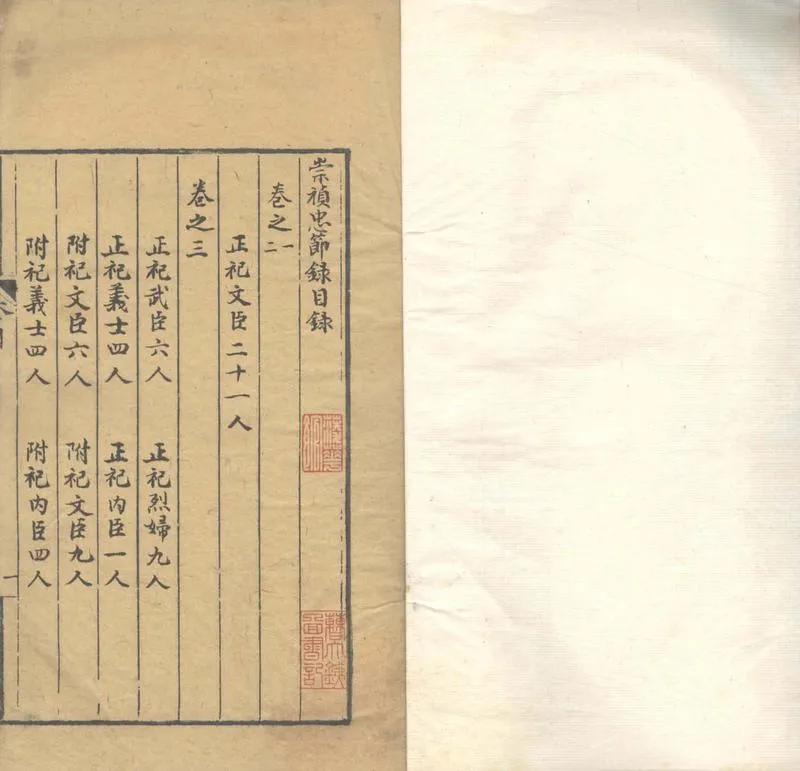 崇禎忠節録目録
卷之一二
正祀文臣二十一人
卷之三
正祀武臣六人 正祀烈婦九人
正祀義士四人 正祀内臣一人
附祀文臣六人 附祀文臣九人
附祀義士四人 附祀内臣四人
一